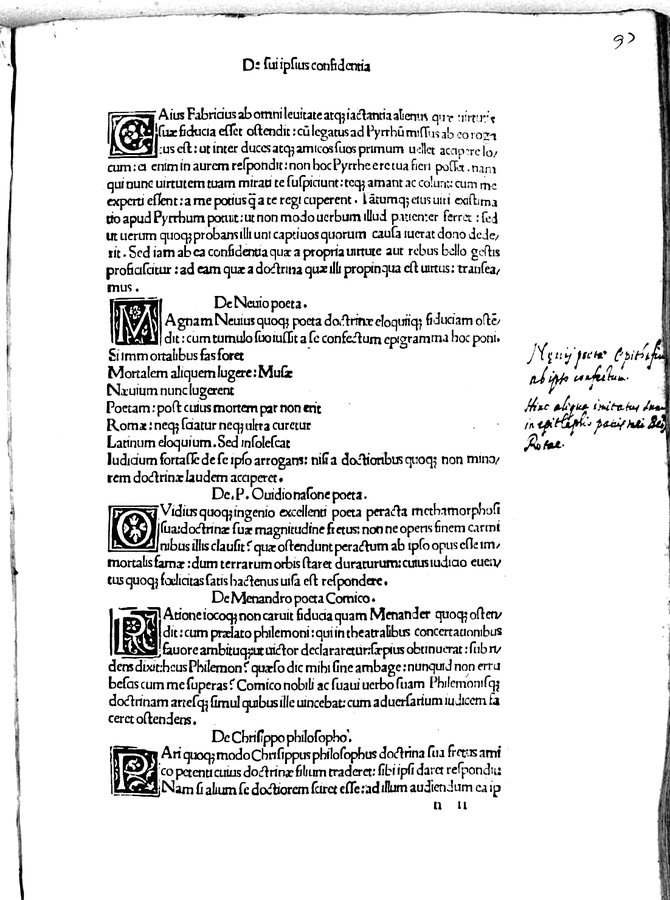 97
De sui ipsius confidentia
CAius Fabricius ab omni leuitate atq; iactantia alienus quæ uirtutis
suæ fiducia esset ostendit: cũ legatus ad Pyrrhũ missus ab eo roga
tus est: ut inter duces atq; amicos suos primum uellet accipere lo,
cum: ei enim in aurem respondit: non hoc Pyrrhe ere tua fieri posset. nam
qui nunc uirtutem tuam mirati te suspiciunt: teq; amant ac colunt: cum me
experti essent: a me potius q̃ a te regi cuperent. Tãtumq; eius uiri existima
tio apud Pyrrhum potuit: ut non modo uerbum illud patienter ferret: sed
ut uerum quoq; probans illi uni captiuos quorum causa iuerat dono dede,
rit. Sed iam ab ea confidentia quæ a propria uirtute aut rebus bello gestis
proficiscitur: ad eam quæ a doctrina quæ illi propinqua est uirtus: transea,
mus.
De Neuio poeta.
MAgnam Neuius quoq; poeta doctrinæ eloquiiq; fiduciam ostẽ/
dit: cum tumulo suo iussit a se confectum epigramma hoc poni.
Si immortalibus fas foret
Mortalem aliquem lugere: Musæ
Næuium nunc lugerent
Poetam: post cuius mortem par non erit
Romæ: neq; sciatur neq; ultra curetur
Latinum eloquium. Sed insolescat
Iudicium fortasse de se ipso arrogans: nisi a doctioribus quoq; non mino,
rem doctrinæ laudem acciperet.
De. P. Ouidio nasone poeta.
OVidius quoq; ingenio excellenti poeta peracta methamorphosi
sua: doctrinæ suæ magnitudine fretus: non ne operis finem carmi
nibus illis clausit? quæ ostendunt peractum ab ipso opus esse im/
mortalis famæ: dum terrarum orbis staret duraturum: cuius iudicio euen/
tus quoq; fœlicitas satis hactenus uisa est respondere.
De Menandro poeta Comico.
RAtione iocoq; non caruit fiducia quam Menander quoq; osten/
dit: cum prælato philemoni: qui in theatralibus concertationibus
fauore ambituq; ut uictor declararetur: sæpius obtinuerat: sub ri/
dens dixit: heus Philemon? quæso dic mihi sine ambage: nunquid non eru
bescas cum me superas? Comico nobili ac suaui uerbo suam Philemonisq;
doctrinam artesq; simul quibus ille uincebat: cum aduersarium iudicem fa
ceret ostendens.
De Chrisippo philosopho.
PAri quoq; modo Chrisippus philosophus doctrina sua fretus ami
co petenti cuius doctrinæ filium traderet: sibi ipsi daret respondit:
Nam si alium se doctiorem sciret esse: ad illum audiendum ea ip
n ii
poetæ Epitaphium
ab ipso confectum.
Hinc aliqua imitatus
in epitaphio
Rotae.